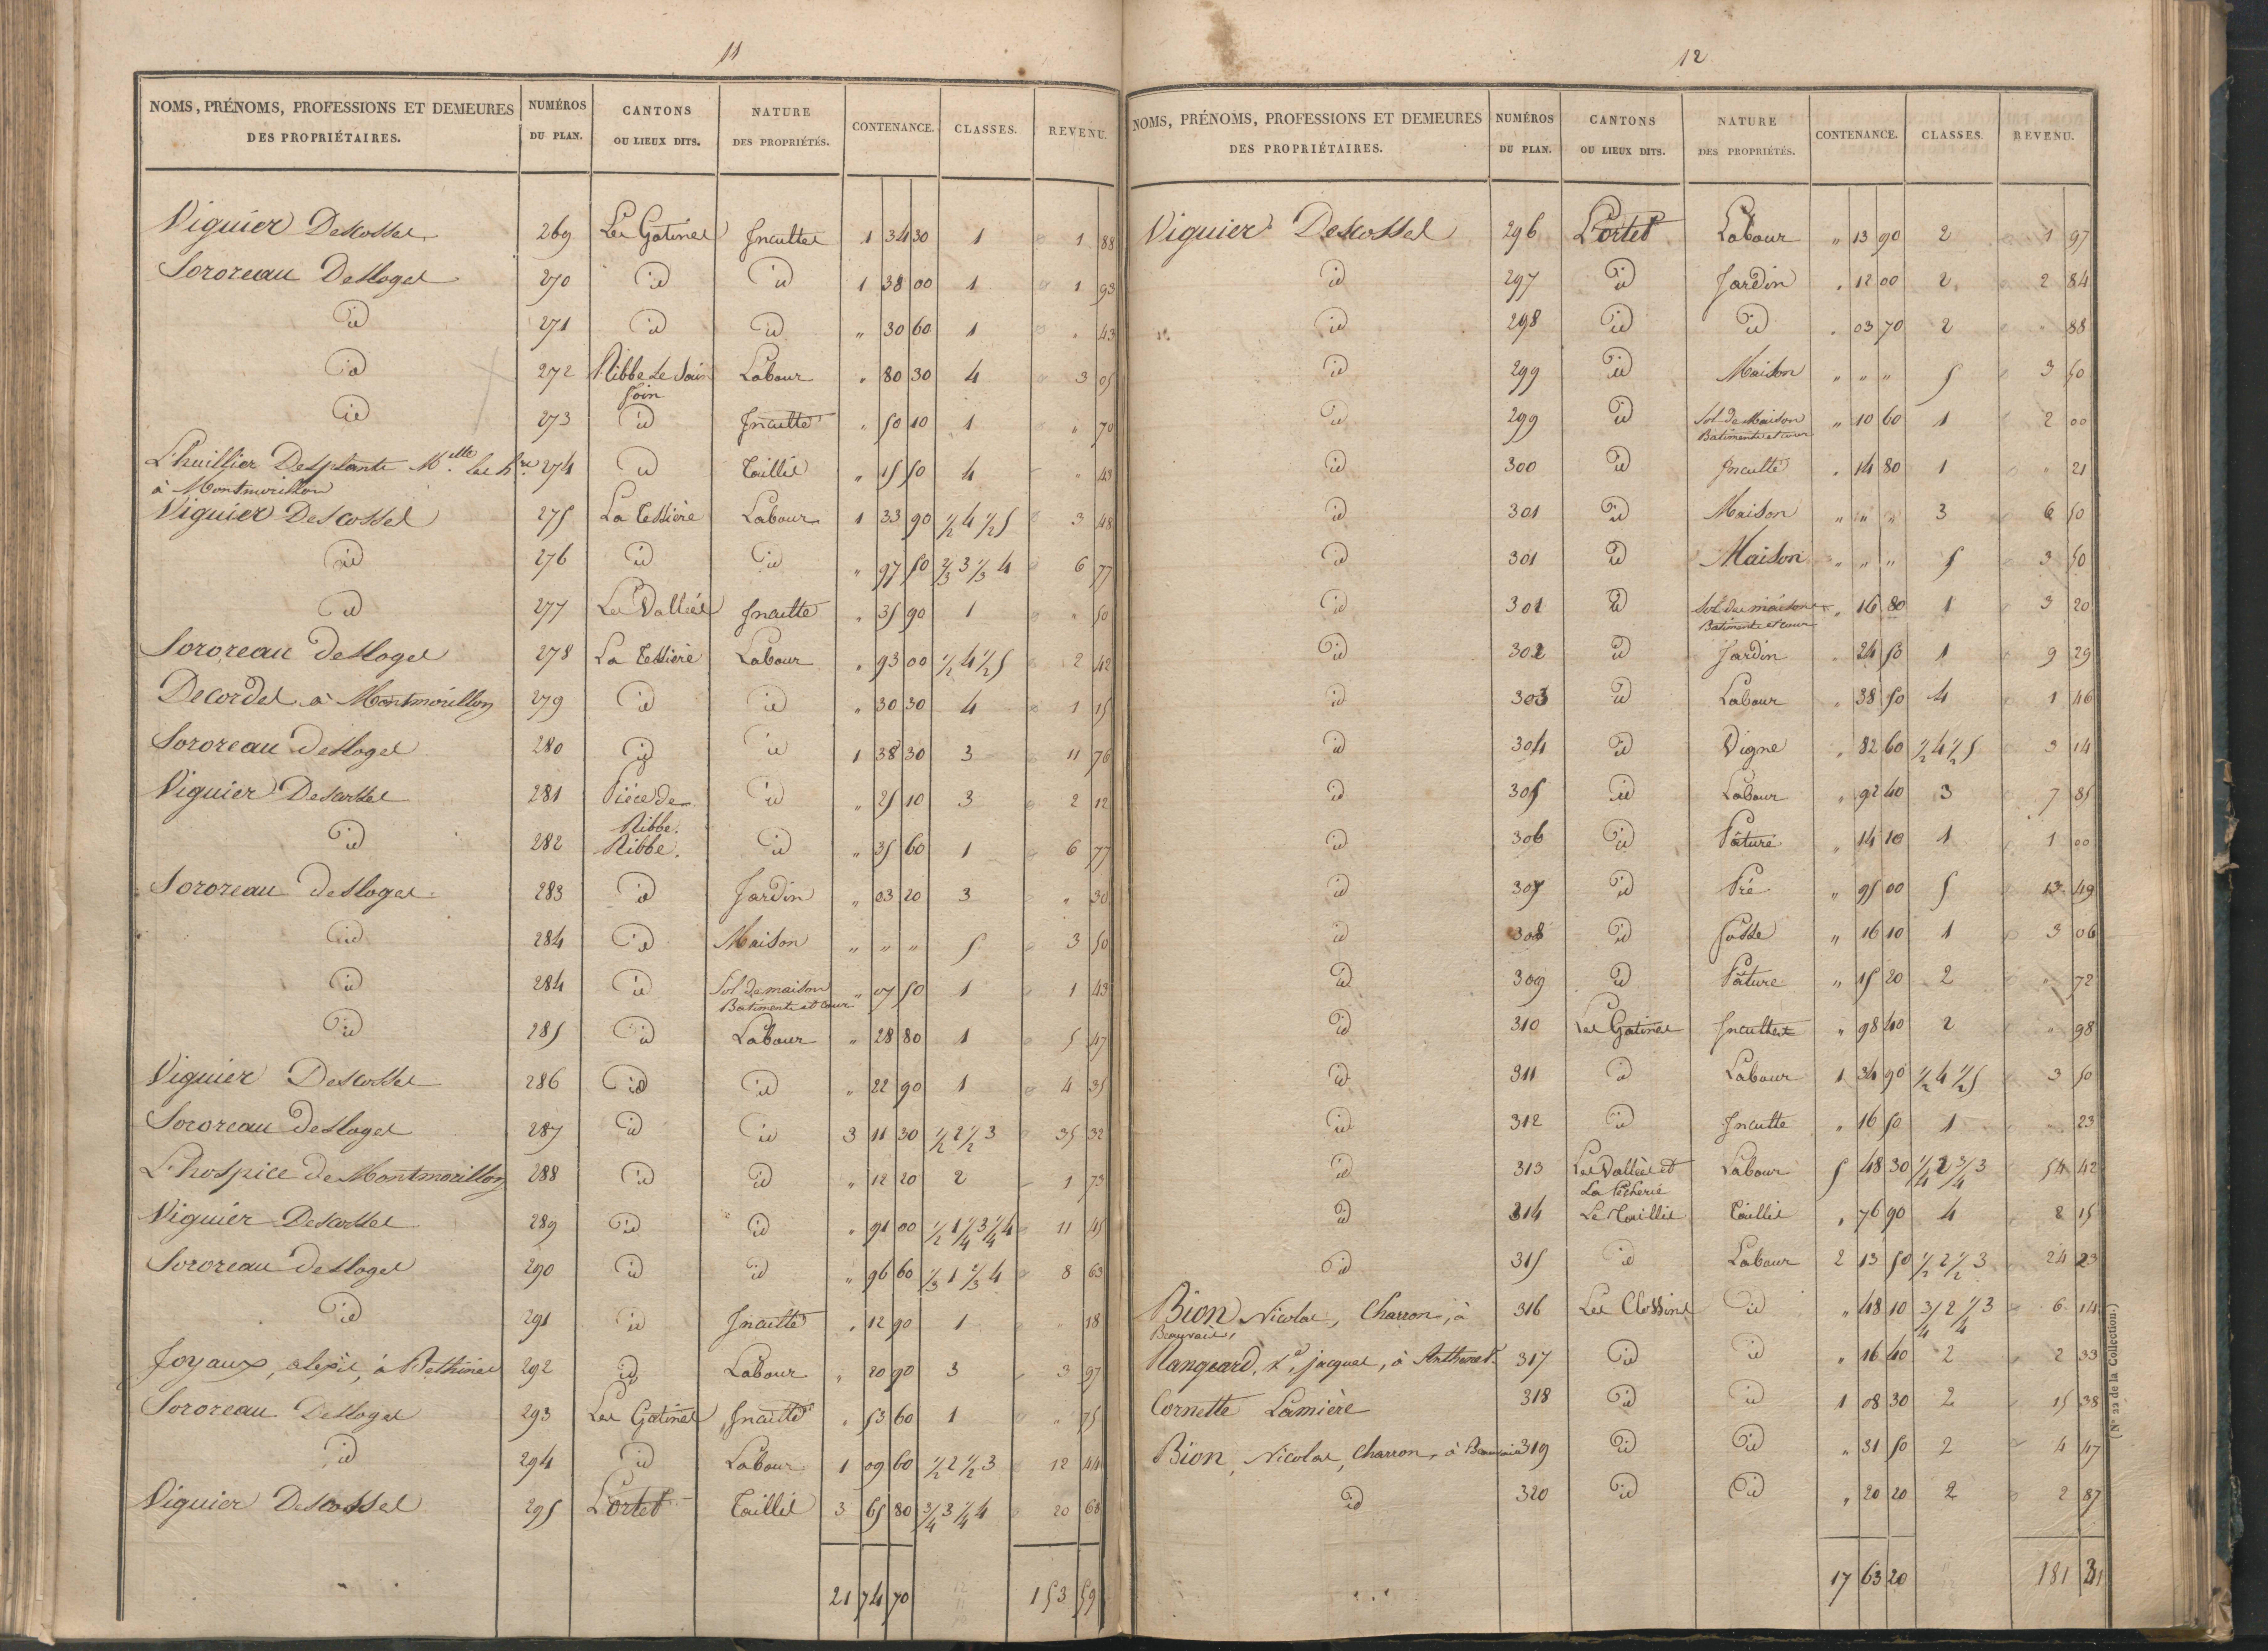 11
NOMS, PRÉNOMS, PROFESSIONS ET DEMEURES DES PROPRIÉTAIRES. NUMÉROS DU PLAN. CANTONS OU LIEUX DITS. NATURE DES PROPRIÉTÉS. CONTENANCE. CLASSES. REVENU.
Viguier Descosses 269 Les Gatines Incultes 1 34 30 1 1 88
Sororeau Desloges 270 id id 1 38 00 1 1 93
id 271 id id " 30 60 1 " 43
id 272 Ribbe Le Sain Labour " 80 30 4 3 05
foin
id 273 id Inculte " 50 10 1 " 70
L'huillier Desplants Melle les hres 274 id Taillis " 15 50 4 " 43
à Montmorillon
Viguier Descosses 275 La Tessière Labour 1 33 90 1/2 4 1/2 5 3 48
id 276 id id " 97 50 2/3 3 1/3 4 6 77
id 277 Les Vallées Inculte " 35 90 1 " 50
Sororeau desloges 278 La Tessière Labour " 93 00 1/2 4 1/2 5 2 42
Decordes à Montmorillon 279 id id " 30 30 4 1 15
Sororeau desloges 280 id id 1 38 30 3 11 76
Viguier Descosses 281 Pièce de id " 25 10 3 2 12
Ribbe.
id 282 Ribbe. id " 35 60 1 6 77
Sororeau desloges 283 id Jardin " 03 20 3 " 30
id 284 id Maison " " " 5 3 50
id 284 id Sol de maison " 07 50 1 1 43
Batiments et cour
id 285 id Labour " 28 80 1 5 47
Viguier Descosses 286 id id " 22 90 1 4 35
Sororeau desloges 287 id id 3 11 30 1/2 2 1/2 3 35 32
L'hospice de Montmorillon 288 id id " 12 20 2 1 73
Viguier Descosses 289 id id " 91 00 1/2 1 1/4 3 1/4 4 11 45
Sororeau desloges 290 id id " 96 60 1/3 1 2/3 4 8 63
id 291 id Inculte " 12 90 1 " 18
Joyaux, alexis, à Bethines 292 id Labour " 20 90 3 3 97
Sororeau Desloges 293 Les Gatines Inculte " 53 60 1 " 75
id 294 id Labour 1 09 60 1/2 2 1/2 3 12 44
Viguier Descosses 295 L'ortet Taillis 3 65 80 3/4 3 1/4 4 20 68
21 74 70 153 59
12
NOMS, PRÉNOMS, PROFESSIONS ET DEMEURES DES PROPRIÉTAIRES. NUMÉROS DU PLAN. CANTONS OU LIEUX DITS. NATURE DES PROPRIÉTÉS. CONTENANCE. CLASSES. REVENU.
Viguier Descosses 296 L'ortet Labour " 13 90 2 1 97
id 297 id Jardin " 12 00 2 2 84
id 298 id id " 03 70 2 " 88
id 299 id Maison " " " 5 3 50
id 299 id Sol de Maison " 10 60 1 2 00
Batiments et cour
id 300 id Inculte " 14 80 1 " 21
id 301 id Maison " " " 3 6 50
id 301 id Maison " " " 5 3 50
id 301 id Sol des maisons " 16 80 1 3 20
Batiments et cour
id 302 id Jardin " 24 50 1 9 29
id 303 id Labour " 38 50 4 1 46
id 304 id Vigne " 82 60 1/2 4 1/2 5 3 14
id 305 id Labour " 92 40 3 7 85
id 306 id Pâture " 14 10 1 1 00
id 307 id Pré " 95 00 5 13 49
id 308 id fosse " 16 10 1 3 06
id 309 id Pâture " 15 20 2 " 72
id 310 Les Gatines Incultes " 98 40 2 " 98
id 311 id Labour 1 34 90 1/2 4 1/2 5 3 50
id 312 id Inculte " 16 50 1 " 23
id 313 Les Vallées et Labour 5 48 30 1/4 2 3/4 3 54 42
La Pêcherie
id 314 Le Taillis Taillis " 76 90 4 2 15
id 315 id Labour 2 13 50 1/2 2 1/2 3 24 23
Bion, Nicolas, Charron, à 316 Les Clossins id " 48 10 3/4 2 1/4 3 6 14
Beauvais,
Rangeard, Ld, jacques, à Anthenet 317 id id " 16 40 2 2 33
Cornette Lamière 318 id id 1 08 30 2 15 38
Bion, Nicolas, Charron, à Beauvais 319 id id " 31 50 2 4 47
id 320 id id " 20 20 2 2 87
17 63 20 181
(N° 22 de la Collection.)